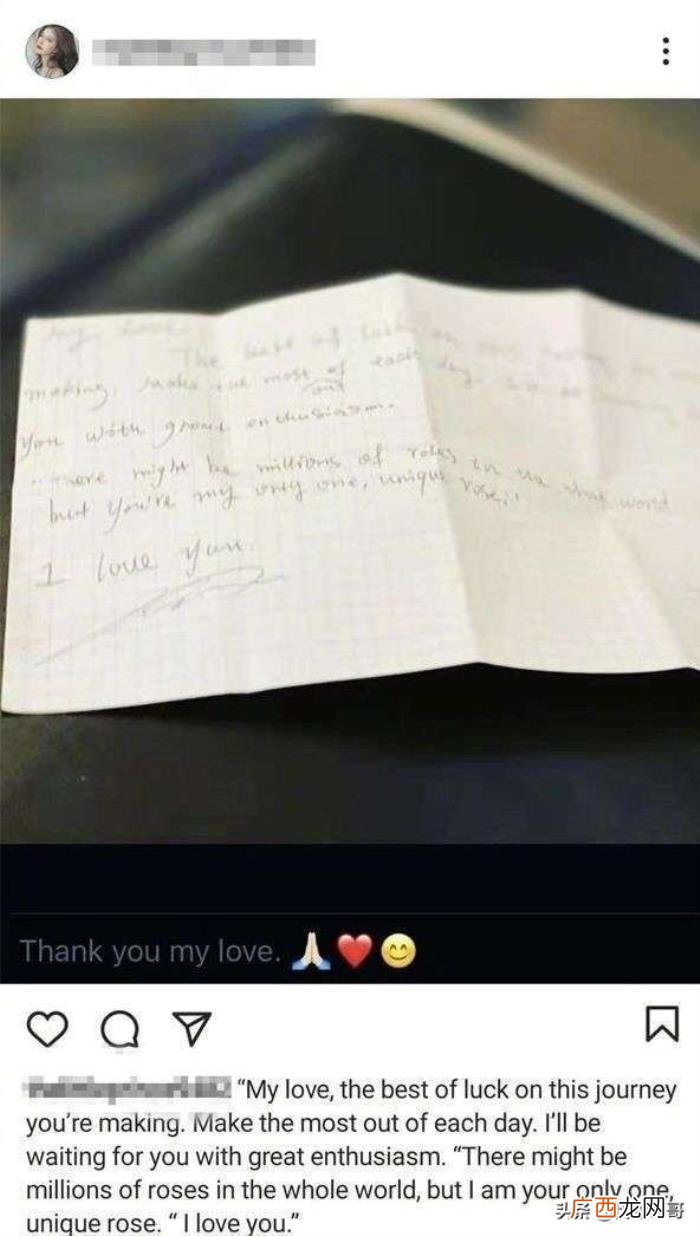 My love
The best of luck on
making. Make the most of each day.
out
you with great enthusiasm.
"There might be millions of roses in the world
but you're my only one, unique rose."
I love you.
Thank you my love. 🙏🏻❤️😊
"My love, the best of luck on this journey
you're making. Make the most out of each day. I'll be
waiting for you with great enthusiasm. "There might be
millions of roses in the whole world, but I am your only one,
unique rose. " I love you."
头条
广西龙网
哥